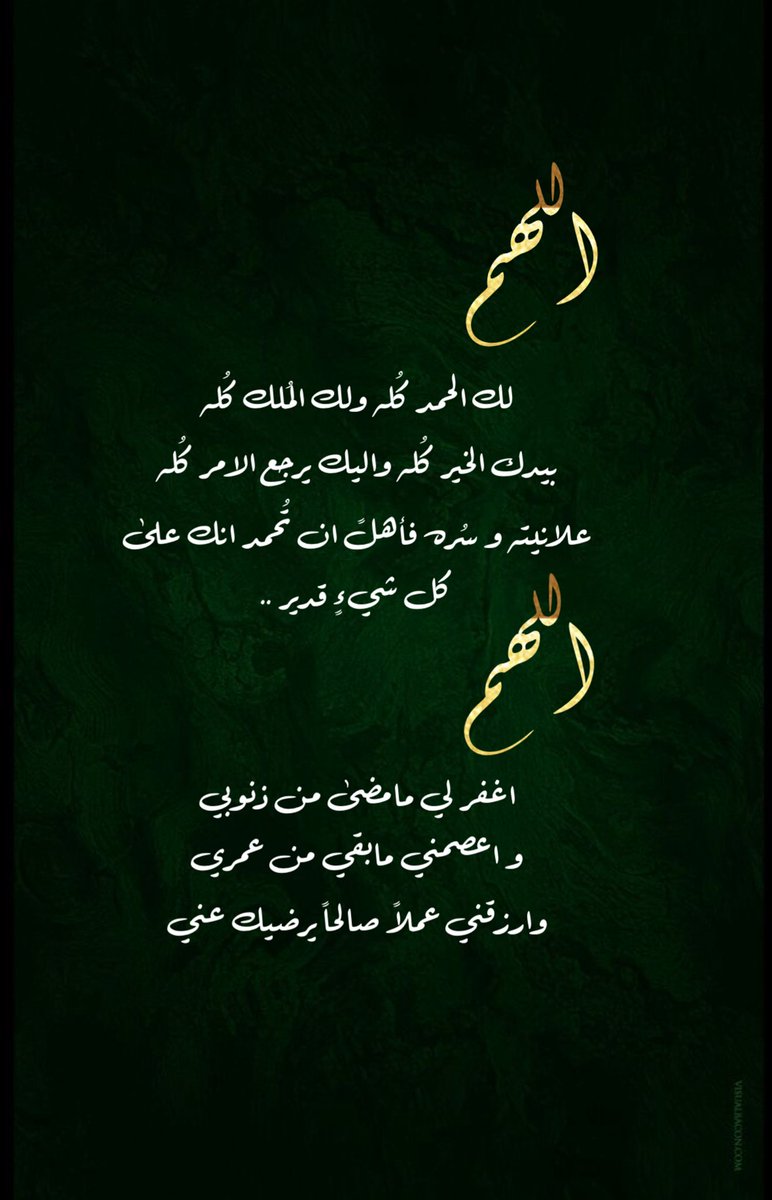 اللهم
لك الحمد كُله ولك المُلك كُله
بيدك الخير كُله واليك يرجع الامر كُله
علانيته و سُره فأهلً ان تُحمد انك علىٰ
كل شيءٍ قدير ..
اللهم
اغفر لي مامضىٰ من زنوبي
و اعصمني مابقي من عمري
وارزقني عملاً صالحاً يرضيك عني
VISUALBACON.COM